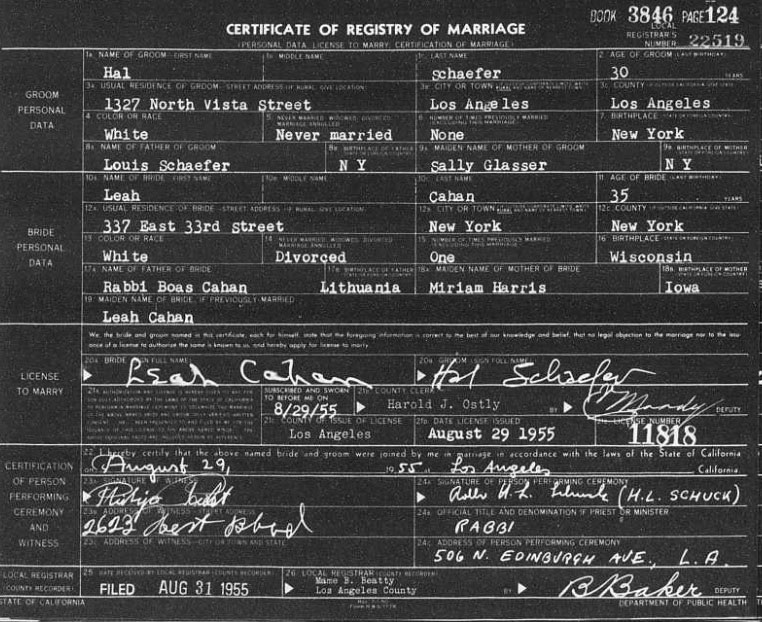 BOOK 3846 PAGE 124
CERTIFICATE OF REGISTRY OF MARRIAGE
(PERSONAL DATA, LICENSE TO MARRY, CERTIFICATION OF MARRIAGE)
LOCAL REGISTRAR'S NUMBER 22519
GROOM PERSONAL DATA
1A. NAME OF GROOM—FIRST NAME 1B. MIDDLE NAME 1C. LAST NAME 2. AGE OF GROOM (LAST BIRTHDAY)
Hal Schaefer 30 YEARS
3A. USUAL RESIDENCE OF GROOM—STREET ADDRESS (IF RURAL, GIVE LOCATION) 3B. CITY OR TOWN 3C. COUNTY
1327 North Vista Street Los Angeles Los Angeles
4. COLOR OR RACE 5. NEVER MARRIED, WIDOWED, DIVORCED 6. NUMBER OF TIMES PREVIOUSLY MARRIED 7. BIRTHPLACE
White Never married None New York
8A. NAME OF FATHER OF GROOM 8B. BIRTHPLACE OF FATHER 9A. MAIDEN NAME OF MOTHER OF GROOM 9B. BIRTHPLACE OF MOTHER
Louis Schaefer N Y Sally Glasser N Y
BRIDE PERSONAL DATA
10A. NAME OF BRIDE—FIRST NAME 10B. MIDDLE NAME 10C. LAST NAME 11. AGE OF BRIDE (LAST BIRTHDAY)
Leah Cahan 35 YEARS
12A. USUAL RESIDENCE OF BRIDE—STREET ADDRESS (IF RURAL, GIVE LOCATION) 12B. CITY OR TOWN 12C. COUNTY
337 East 33rd Street New York New York
13. COLOR OR RACE 14. NEVER MARRIED, WIDOWED, DIVORCED 15. NUMBER OF TIMES PREVIOUSLY MARRIED 16. BIRTHPLACE
White Divorced One Wisconsin
17A. NAME OF FATHER OF BRIDE 17B. BIRTHPLACE OF FATHER 18A. MAIDEN NAME OF MOTHER OF BRIDE 18B. BIRTHPLACE OF MOTHER
Rabbi Boas Cahan Lithuania Miriam Harris Iowa
19. MAIDEN NAME OF BRIDE, IF PREVIOUSLY MARRIED
Leah Cahan
LICENSE TO MARRY
We, the bride and groom named in this certificate, each for himself, state that the foregoing information is correct to the best of our knowledge and belief, that no legal objection to the marriage nor to the issuance of a license to authorize the same is known to us, and hereby apply for license to marry.
20A. BRIDE (SIGN FULL NAME) 20B. GROOM (SIGN FULL NAME)
Leah Cahan Hal Schaefer
SUBSCRIBED AND SWORN TO BEFORE ME ON 8/29/55
21B. COUNTY CLERK
Harold J. Ostly BY Moody DEPUTY
21C. COUNTY OF ISSUE OF LICENSE 21D. DATE LICENSE ISSUED 21E. LICENSE NUMBER
Los Angeles August 29 1955 11818
CERTIFICATION OF PERSON PERFORMING CEREMONY AND WITNESS
22. I hereby certify that the above named bride and groom were joined by me in marriage in accordance with the laws of the State of California
on August 29, 1955 at Los Angeles California.
23A. SIGNATURE OF WITNESS 24A. SIGNATURE OF PERSON PERFORMING CEREMONY
(H.L. SCHUCK)
23B. ADDRESS OF WITNESS—STREET ADDRESS 24B. OFFICIAL TITLE AND DENOMINATION IF PRIEST OR MINISTER
2623 RABBI
23C. ADDRESS OF WITNESS—CITY OR TOWN AND STATE 24C. ADDRESS OF PERSON PERFORMING CEREMONY
506 N. EDINBURGH AVE., L.A.
LOCAL REGISTRAR (COUNTY RECORDER)
25. DATE RECEIVED BY LOCAL REGISTRAR (COUNTY RECORDER) 26. LOCAL REGISTRAR (COUNTY RECORDER)
FILED AUG 31 1955 Mame B. Beatty
Los Angeles County BY B Baker DEPUTY
STATE OF CALIFORNIA DEPARTMENT OF PUBLIC HEALTH